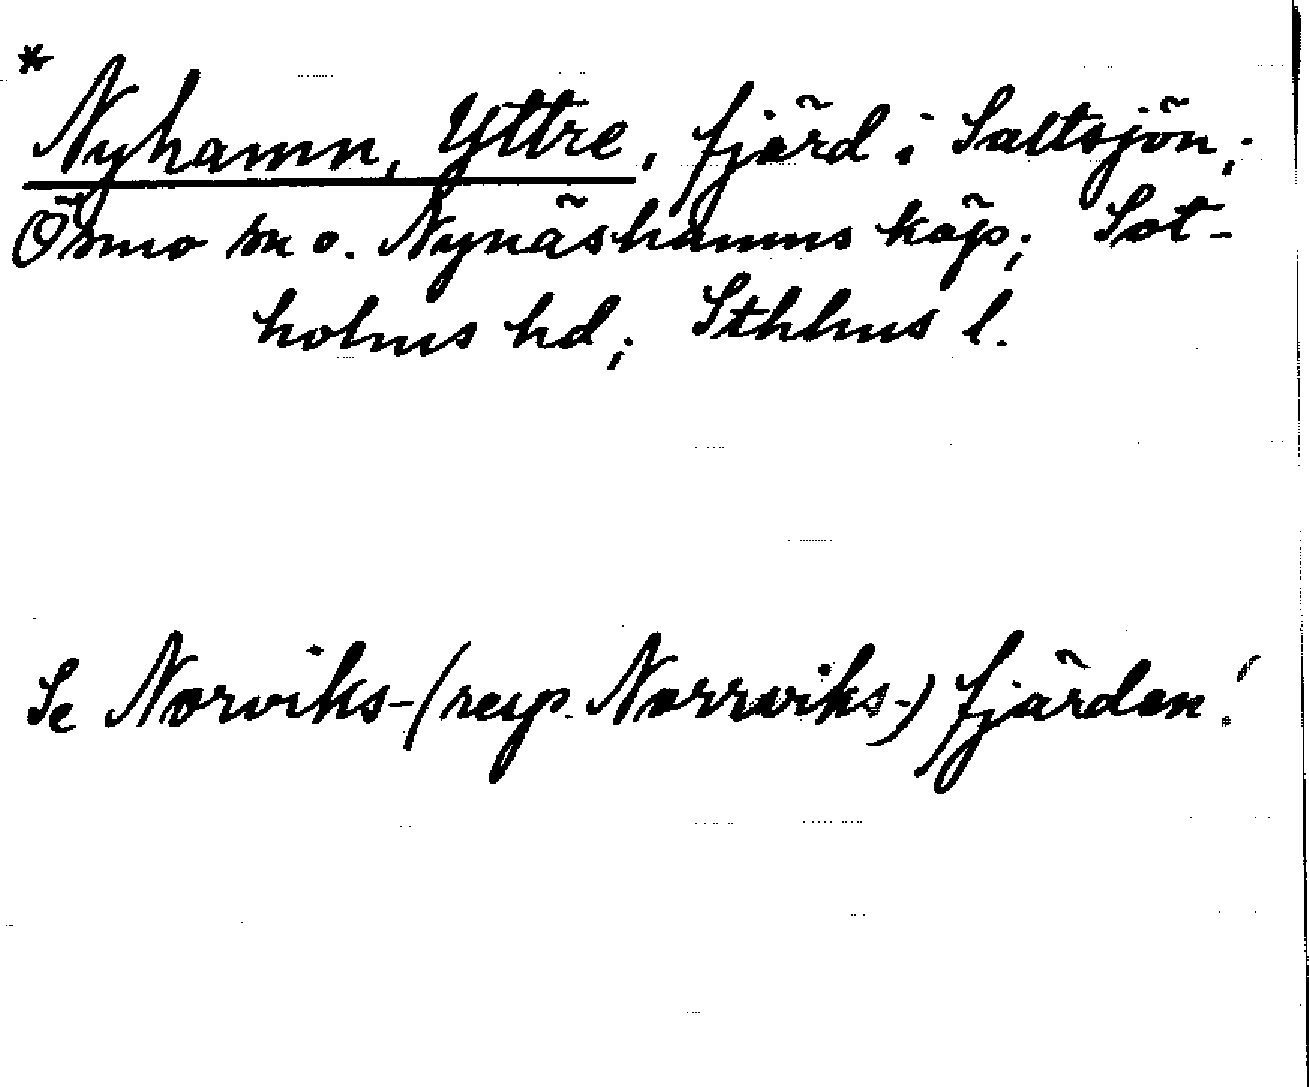 * Nyhamn, Yttre, fjärd i Saltsjön;
Ösmo sn o. Nynäshamns köp; Sot-
holms hd; Sthlms l.
Se Norviks-(resp. Norrviks-) fjärden!